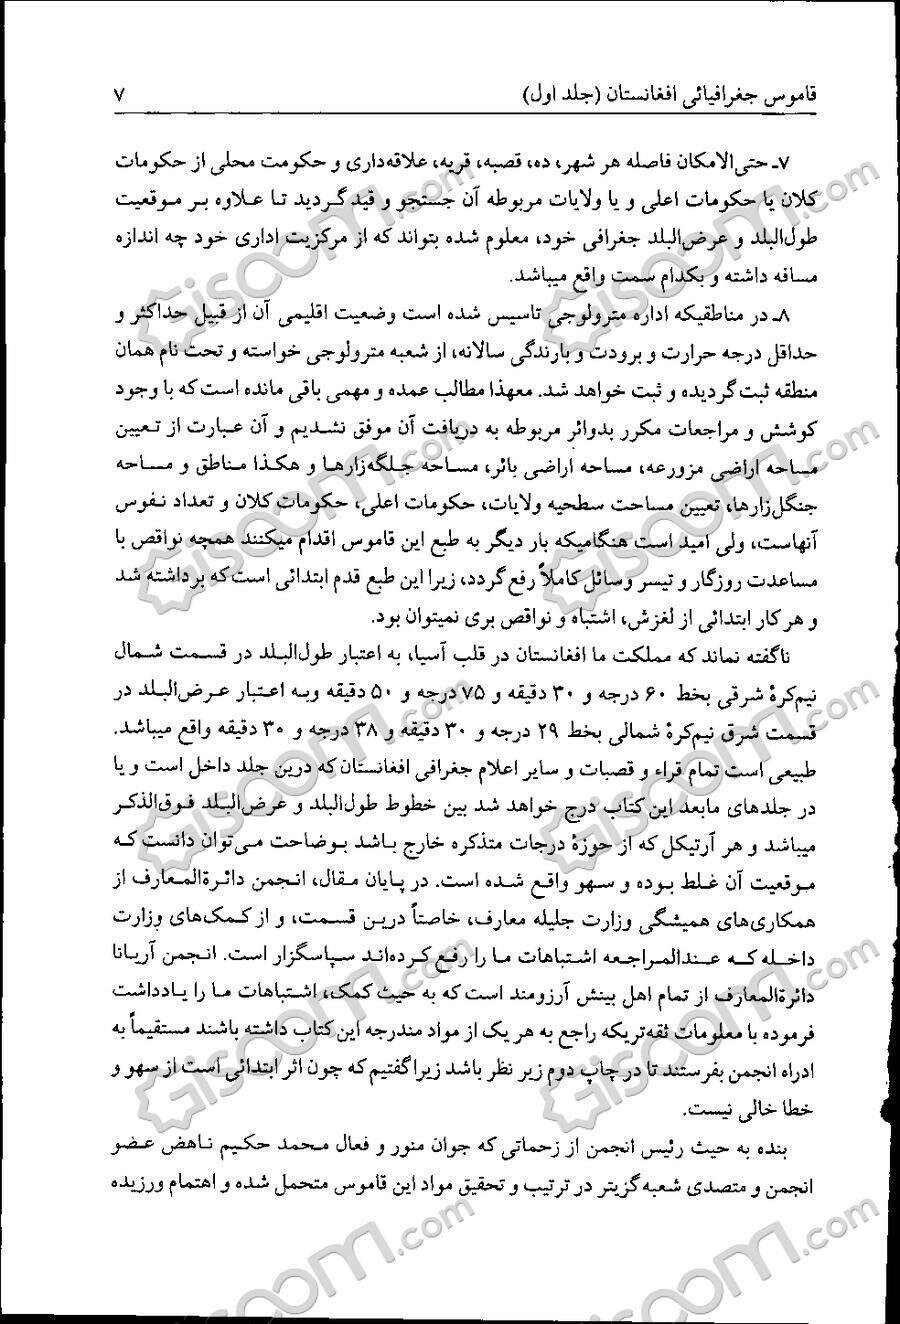 قاموس جغرافیائی افغانستان (جلد اول) ۷
۷ـ حتی‌الامکان فاصله هر شهر، ده، قصبه، قریه، علاقه‌داری و حکومت محلی از حکومات
کلان یا حکومات اعلی و یا ولایات مربوطه آن جستجو و قید گردید تا علاوه بر موقعیت
طول‌البلد و عرض‌البلد جغرافی خود، معلوم شده بتواند که از مرکزیت اداری خود چه اندازه
مسافه داشته و بکدام سمت واقع میباشد.
۸ـ در مناطقیکه اداره مترولوجی تاسیس شده است وضعیت اقلیمی آن از قبیل حداکثر و
حداقل درجه حرارت و برودت و بارندگی سالانه، از شعبه مترولوجی خواسته و تحت نام همان
منطقه ثبت گردیده و ثبت خواهد شد. معهذا مطالب عمده و مهمی باقی مانده است که با وجود
کوشش و مراجعات مکرر بدوائر مربوطه به دریافت آن موفق نشدیم و آن عبارت از تعیین
مساحه اراضی مزورعه، مساحه اراضی بائر، مساحه جلگه‌زارها و هکذا مناطق و مساحه
جنگل‌زارها، تعیین مساحت سطحیه ولایات، حکومات اعلی، حکومات کلان و تعداد نفوس
آنهاست، ولی امید است هنگامیکه بار دیگر به طبع این قاموس اقدام میکنند همچه نواقص با
مساعدت روزگار و تیسر وسائل کاملاً رفع گردد، زیرا این طبع قدم ابتدائی است که برداشته شد
و هر کار ابتدائی از لغزش، اشتباه و نواقص بری نمیتوان بود.
ناگفته نماند که مملکت ما افغانستان در قلب آسیا، به اعتبار طول‌البلد در قسمت شمال
نیم‌کرۀ شرقی بخط ۶۰ درجه و ۳۰ دقیقه و ۷۵ درجه و ۵۰ دقیقه وبه اعتبار عرض‌البلد در
قسمت شرق نیم‌کرۀ شمالی بخط ۲۹ درجه و ۳۰ دقیقه و ۳۸ درجه و ۳۰ دقیقه واقع میباشد.
طبیعی است تمام قراء و قصبات و سایر اعلام جغرافی افغانستان که درین جلد داخل است و یا
در جلدهای مابعد این کتاب درج خواهد شد بین خطوط طول‌البلد و عرض‌البلد فوق‌الذکر
میباشد و هر آرتیکل که از حوزۀ درجات متذکره خارج باشد بوضاحت می‌توان دانست که
موقعیت آن غلط بوده و سهو واقع شده است. در پایان مقال، انجمن دائرةالمعارف از
همکاری‌های همیشگی وزارت جلیله معارف، خاصتاً درین قسمت، و از کمک‌های وزارت
داخله که عندالمراجعه اشتباهات ما را رفع کرده‌اند سپاسگزار است. انجمن آریانا
دائرةالمعارف از تمام اهل بینش آرزومند است که به حیث کمک، اشتباهات ما را یادداشت
فرموده با معلومات ثقه‌تریکه راجع به هر یک از مواد مندرجه این کتاب داشته باشند مستقیماً به
ادراه انجمن بفرستند تا در چاپ دوم زیر نظر باشد زیرا گفتیم که چون اثر ابتدائی است از سهو و
خطا خالی نیست.
بنده به حیث رئیس انجمن از زحماتی که جوان منور و فعال محمد حکیم ناهض عضو
انجمن و متصدی شعبه گزیتر در ترتیب و تحقیق مواد این قاموس متحمل شده و اهتمام ورزیده